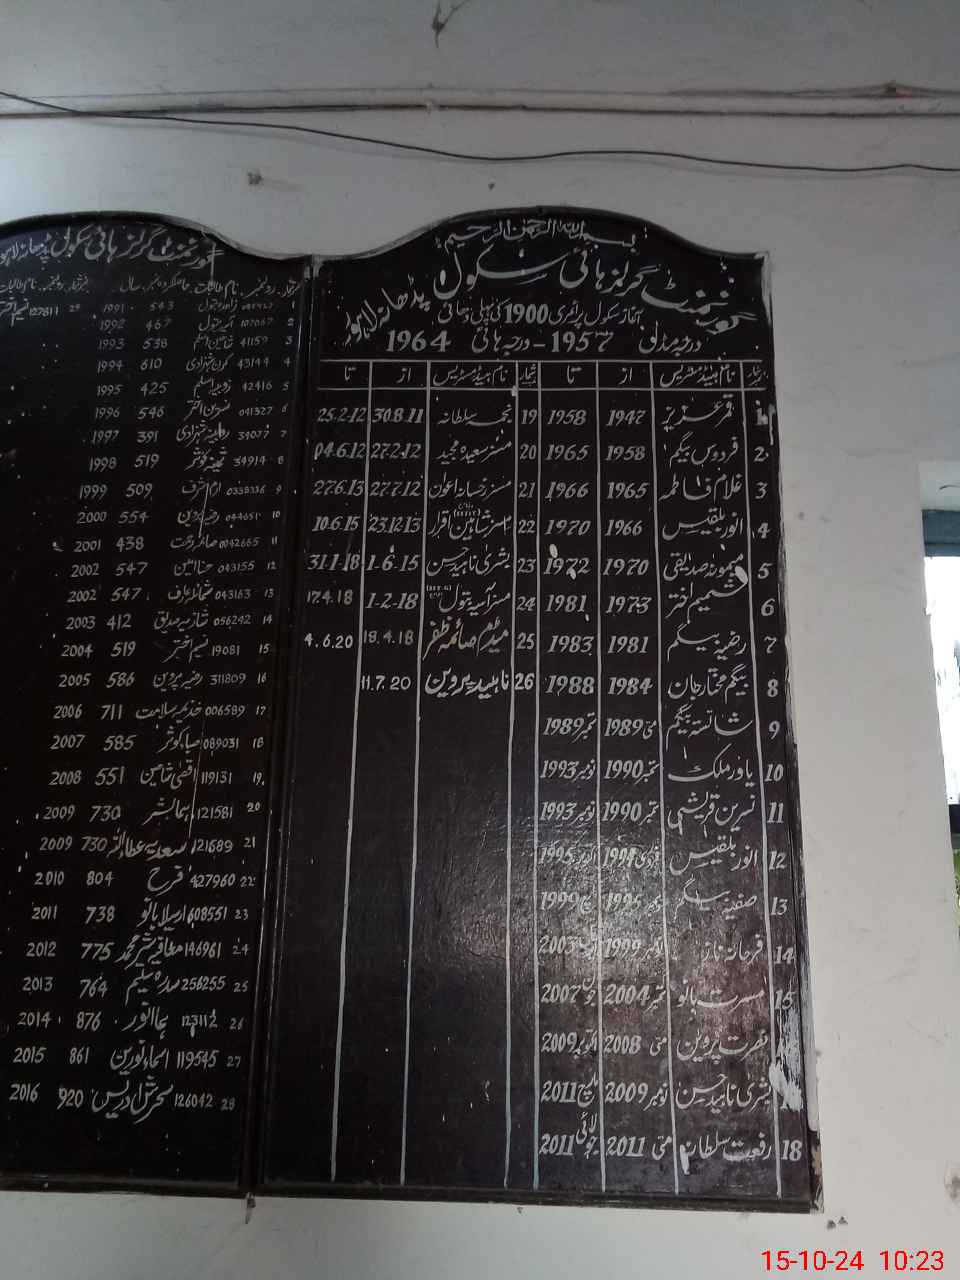 بسم اللہ الرحمن الرحیم
گورنمنٹ گرلز ہائی سکول پڈھانہ لاہور
آغاز سکول پرائمری 1900 کی پہلی دھائی
درجہ مڈل 1957 - درجہ ہائی 1964
نمبر شمار نام ہیڈمسٹریس از تا
1 قمر عزیز 1947 1958
2 فردوس بیگم 1958 1965
3 غلام فاطمہ 1965 1966
4 انور بلقیس 1966 1970
5 میمونہ صدیقی 1970 1972
6 شمیم اختر 1973 1981
7 رضیہ بیگم 1981 1983
8 بیگم مختار جان 1984 1988
9 شائستہ بیگم مئی 1989 ستمبر 1989
10 یاور ملک ستمبر 1990 نومبر 1993
11 نسرین قریشی ستمبر 1990 نومبر 1993
12 انور بلقیس 1994 1995
13 صفیہ بیگم 1995 1999
14 فرحانہ ناز اکتوبر 1999 2003
15 مسرت بانو ستمبر 2004 جون 2007
نصرت پروین مئی 2008 اکتوبر 2009
بشریٰ ناہید حسن نومبر 2009 مارچ 2011
18 رفعت سلطان مئی 2011 جولائی 2011
نمبر شمار نام ہیڈمسٹریس از تا
19 نجمہ سلطانہ 30.8.11 25.2.12
20 مسز سعیدہ مجید 27.2.12 04.6.12
21 مسز رخسانہ اعوان 27.7.12 27.6.13
22 مسز شاہین اقرار 23.12.13 10.6.15
23 بشریٰ ناہید حسن 1-6-15 31-1-18
24 مسز آسیہ بتول 1-2-18 17.4.18
25 میڈم صائمہ ظفر 18.4.18 4.6.20
26 ناہید پروین 11.7.20
گورنمنٹ گرلز ہائی سکول پڈھانہ لاہور
نمبر شمار رولنمبر نام طالبات حاصلکردہ نمبر سال نمبر شمار رولنمبر نام طالبات
زاہدہ بتول 543 1991 29 127811 نسیم اختر
2 107067 آسیہ بتول 467 1992
3 41159 شاہین اسلم 538 1993
4 43144 کرن شہزادی 610 1994
5 42416 زوبیہ اسلم 425 1995
6 041327 نسرین اختر 546 1996
7 34077 روبینہ شہزادی 391 1997
8 34914 ثمینہ کوثر 519 1998
9 0338136 ارم اشرف 509 1999
10 044651 رضیہ پروین 554 2000
11 0042665 صائمہ رفعت 438 2001
12 043155 حنا امین 547 2002
13 043163 شمائلہ عارف 547 2002
14 056242 شازیہ صدیق 412 2003
15 19081 نسیم اختر 519 2004
16 311809 رضیہ پروین 586 2005
17 006589 خدیجہ سلامت 711 2006
18 089031 صبا کوثر 585 2007
19 119131 اقصیٰ شاہین 551 2008
20 121581 سیما بشر 730 2009
21 121689 سعدیہ عطاءاللہ 730 2009
22 427960 فرح 804 2010
23 608551 ارسیلا بانو 738 2011
24 146961 معافیہ شیر محمد 775 2012
25 256255 سدرہ سلیم 764 2013
26 123112 ہما انور 876 2014
27 119545 اسماء نورین 861 2015
28 126042 سحرش ادریس 920 2016
15-10-24 10:23